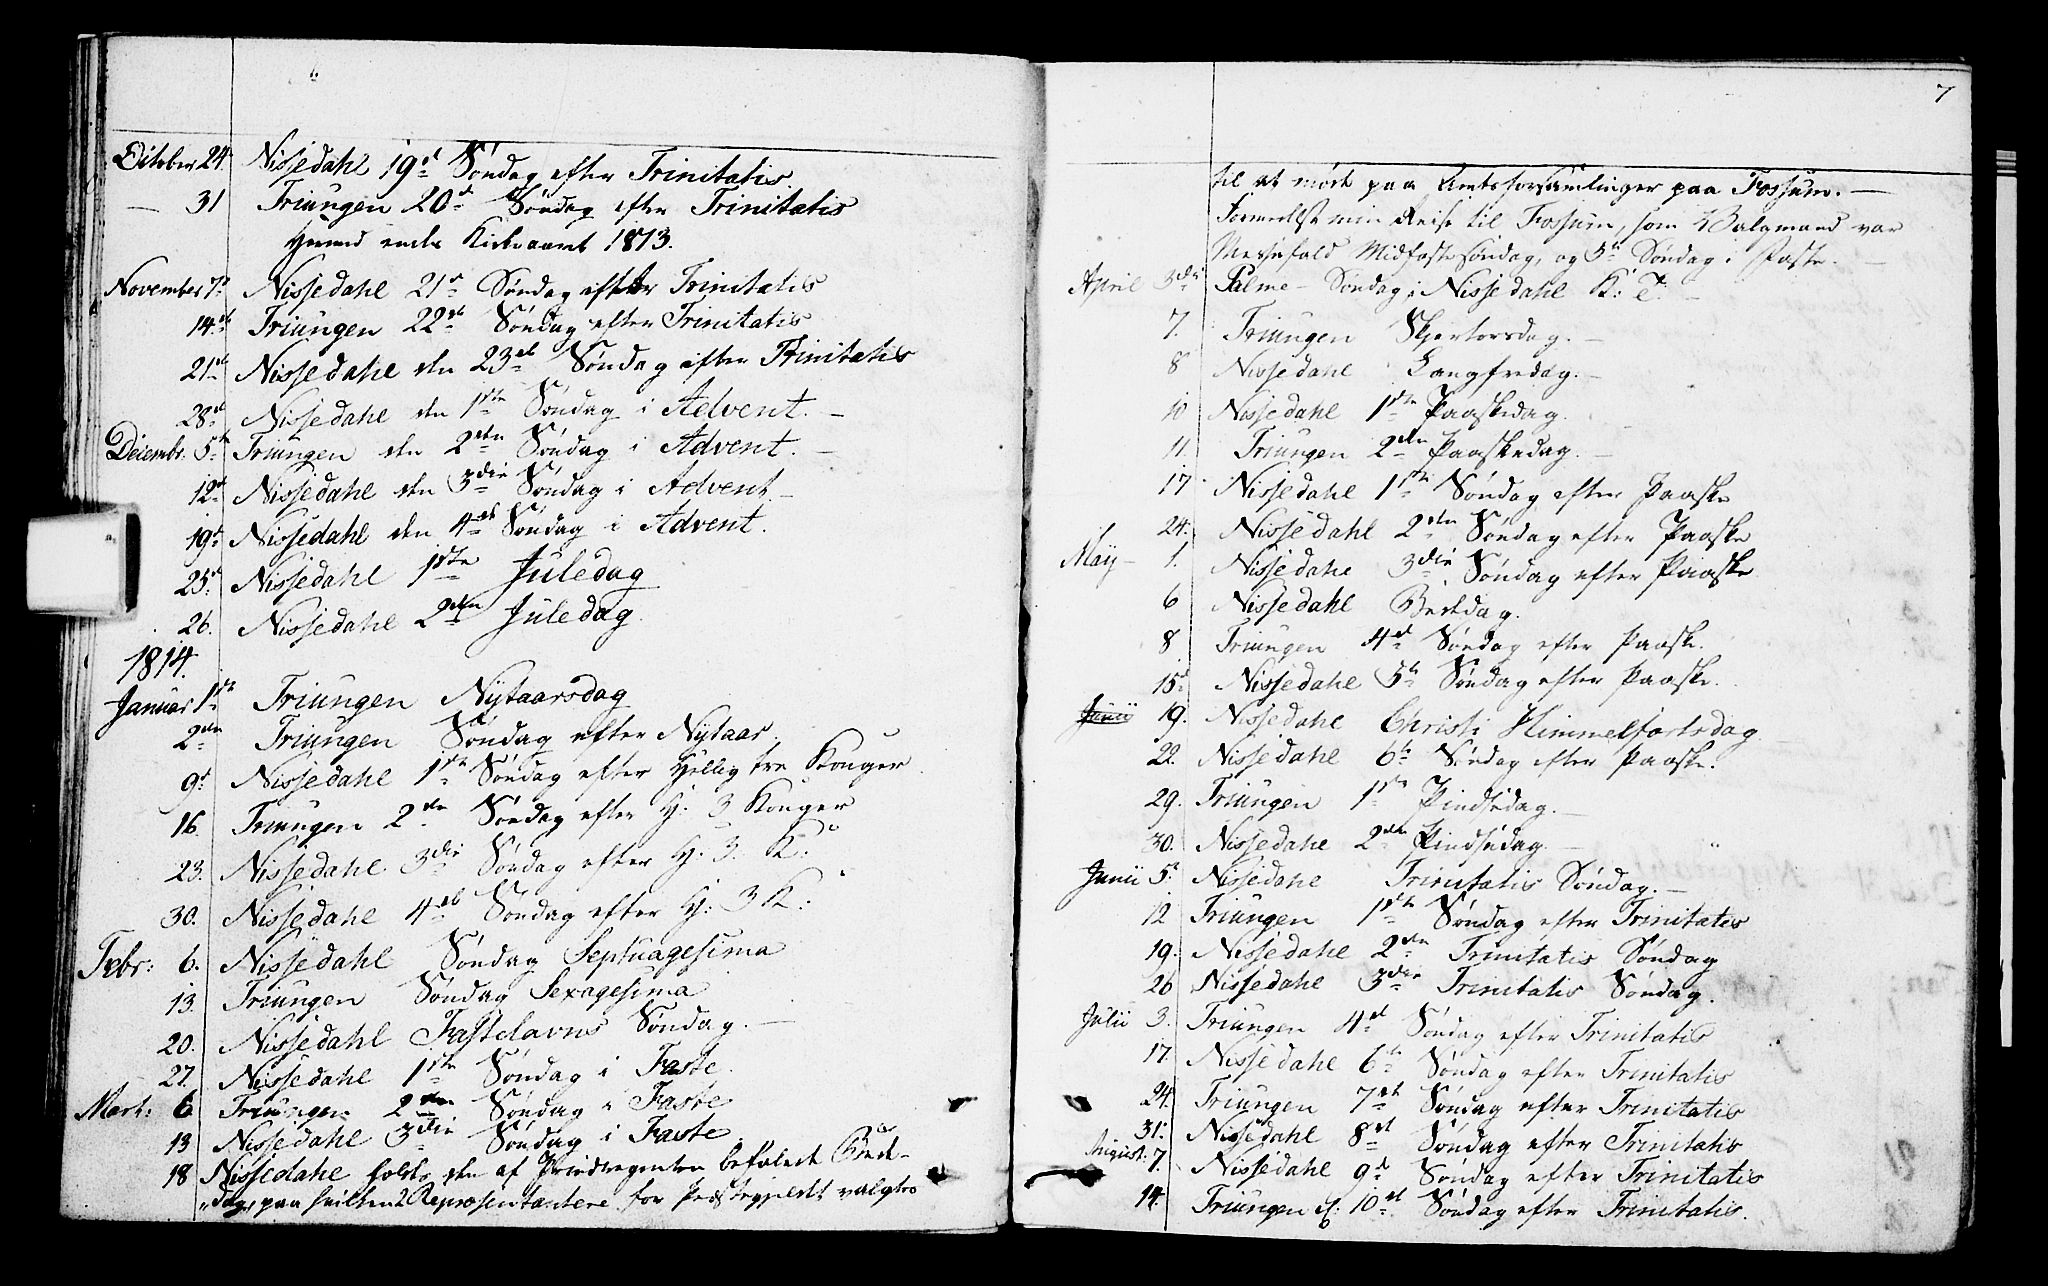 October 24. Nissedahl 19de Søndag efter Trinitatis
— 31 Triungen 20de Søndag efter Trinitatis
Herved ende Kirkeaaret 1813.
November 7de Nissedahl 21de Søndag efter Trinitatis
14de Triungen 22de Søndag efter Trinitatis
21de Nissedahl den 23de Søndag efter Trinitatis
28de Nissedahl den 1ste Søndag i Advent. —
Decembr. 5te Triungen den 2den Søndag i Advent. —
12te Nissedahl den 3die Søndag i Advent. —
19de Nissedahl den 4de Søndag i Advent.
25de Nissedahl 1ste Juledag
26. Nissedahl 2den Juledag.
1814.
Januar 1ste Triungen Nytaarsdag
2den Triungen Søndag efter Nytaar.
9de Nissedahl 1ste Søndag efter Hellig tre Konger
16. Triungen 2den Søndag efter H: 3 Konger
23. Nissedahl 3die Søndag efter H: 3. K:
30. Nissedahl 4de Søndag efter H: 3 K:
Febr: 6. Nissedahl Søndag Septuagesima
13. Triungen Søndag Sexagesima
20. Nissedahl Fastelavns Søndag. —
27. Nissedahl 1ste Søndag i Faste.
Mart: 6 Triungen 2den Søndag i Faste
13 Nissedahl 3die Søndag i Faste
18 Nissedahl holdt den af Prindsregenten befalede Bede-
dag, paa hvilken 2 Repræsentantere for Præstegjeldet valgtes
7
til at møde paa Amtsforsamlinger paa Fossum. —
Formedelst min Reise til Fossum, som Valgmand var
Messefald Midfastesøndag, og 5te Søndag i Faste. —
April 3die Palme-Søndag i Nissedahl K: T. —
7. Triungen Skjertorsdag. —
8 Nissedahl Langfredag. —
10 Nissedahl 1ste Paaskedag.
11. Triungen 2den Paaskedag. —
17 Nissedahl 1ste Søndag efter Paaske
24. Nissedahl 2den Søndag efter Paaske
Maij — 1. Nissedahl 3die Søndag efter Paaske
6 Nissedahl Bededag.
8 Triungen 4de Søndag efter Paaske.
15de Nissedahl 5te Søndag efter Paaske.
Junii 19. Nissedahl Christi Himmelfartsdag
22. Nissedahl 6te Søndag efter Paaske.
29. Triungen 1ste Pindsedag. —
30. Nissedahl 2den Pindsedag. —
Junii 5te Nissedahl Trinitatis Søndag. —
12 Triungen 1ste Søndag efter Trinitatis
19. Nissedahl 2den Trinitatis Søndag
26 Nissedahl 3die Trinitatis Søndag.
Julii 3. Triungen 4de Søndag efter Trinitatis
17. Nissedahl 6te Søndag efter Trinitatis
24. Triungen 7de Søndag efter Trinitatis
31. Nissedahl 8de Søndag efter Trinitatis
August: 7. Nissedahl 9de Søndag efter Trinitatis
14. Triungen 10de Søndag efter Trinitatis.